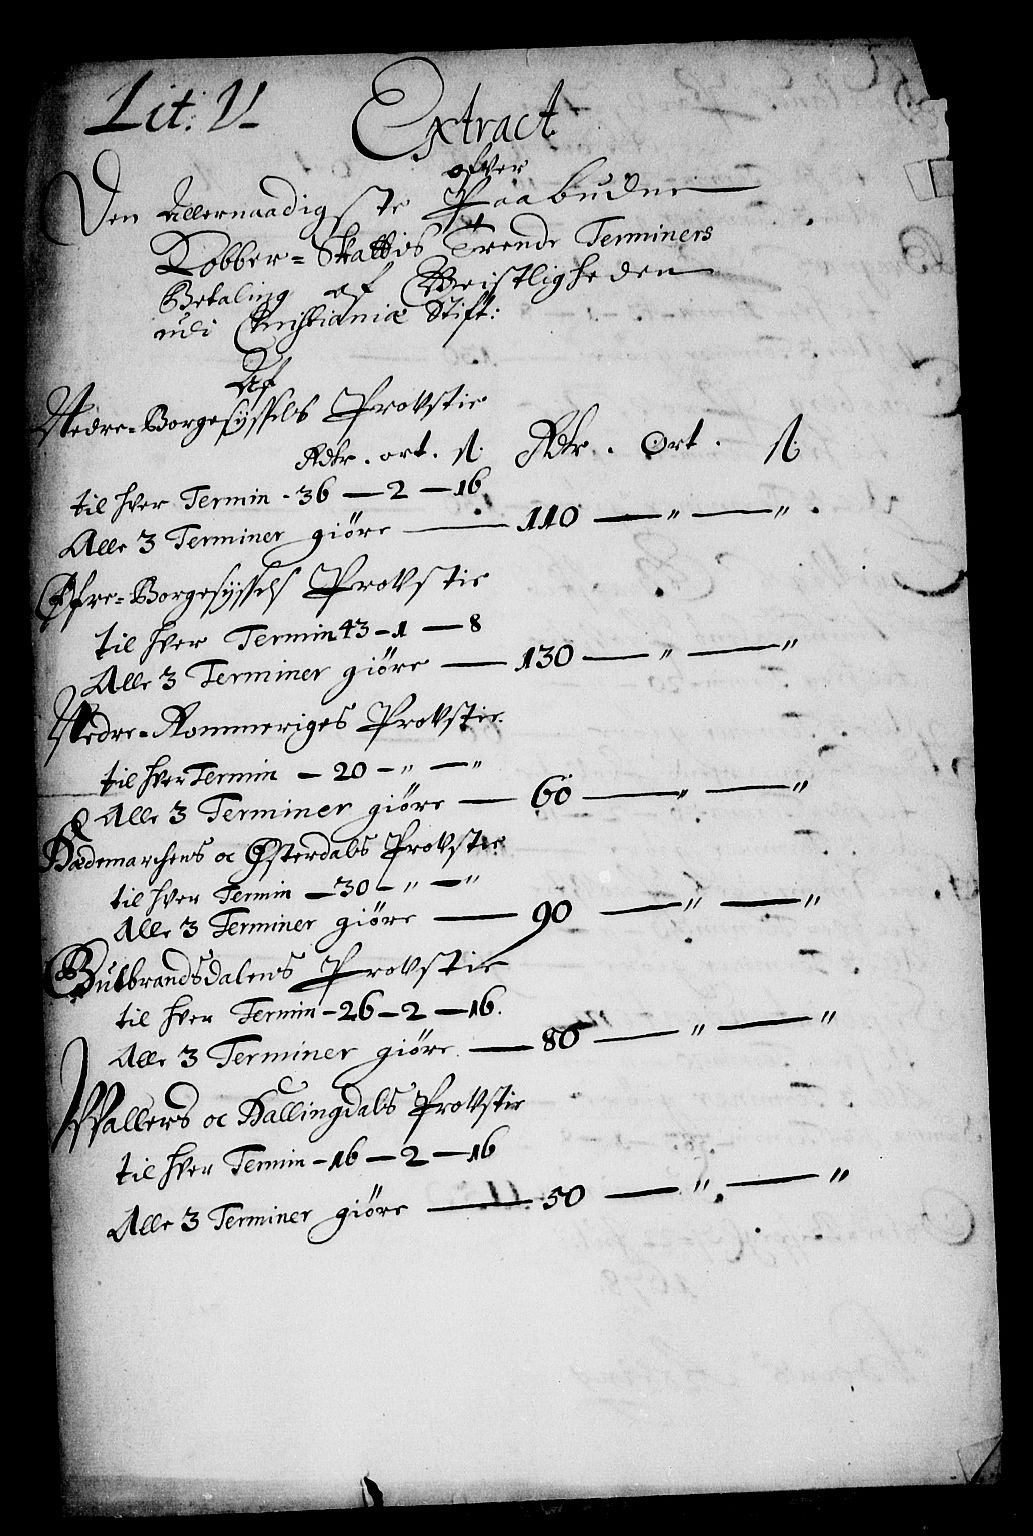 Lit: V
Extract
ofver
Den Allernaadigste Paabudne
Kobber=Skattis Trende Terminers
Betaling af Geistligheden
udi Christianiæ Stift:
Af
Nedre=Borgesyssels Provstie
Rdlr. ort. ſl. Rdlr. Ort. ſl.
til hver Termin - 36 — 2 — 16
Alle 3 Terminer giöre — 110 — „ — „
Öfre=Borgesyssels Provstie
til hver Termin 43 - 1 — 8
Alle 3 Terminer giöre — 130 — „ — „
Nedre=Rommeriges Provstie
til hver Termin — 20 - „ — „
Alle 3 Terminer giöre — 60 — „ — „
Hædemarchens oc Østerdals Provstie
til hver Termin — 30 - „ — „
Alle 3 Terminer giöre — 90 — „ — „
Gulbrandsdalens Provstie
til hver Termin - 26 - 2 — 16.
Alle 3 Terminer giöre — 80 — „ — „
Vallers oc Hallingdals Provstie
til hver Termin - 16 — 2 — 16
Alle 3 Terminer giöre — 50 — „ — „